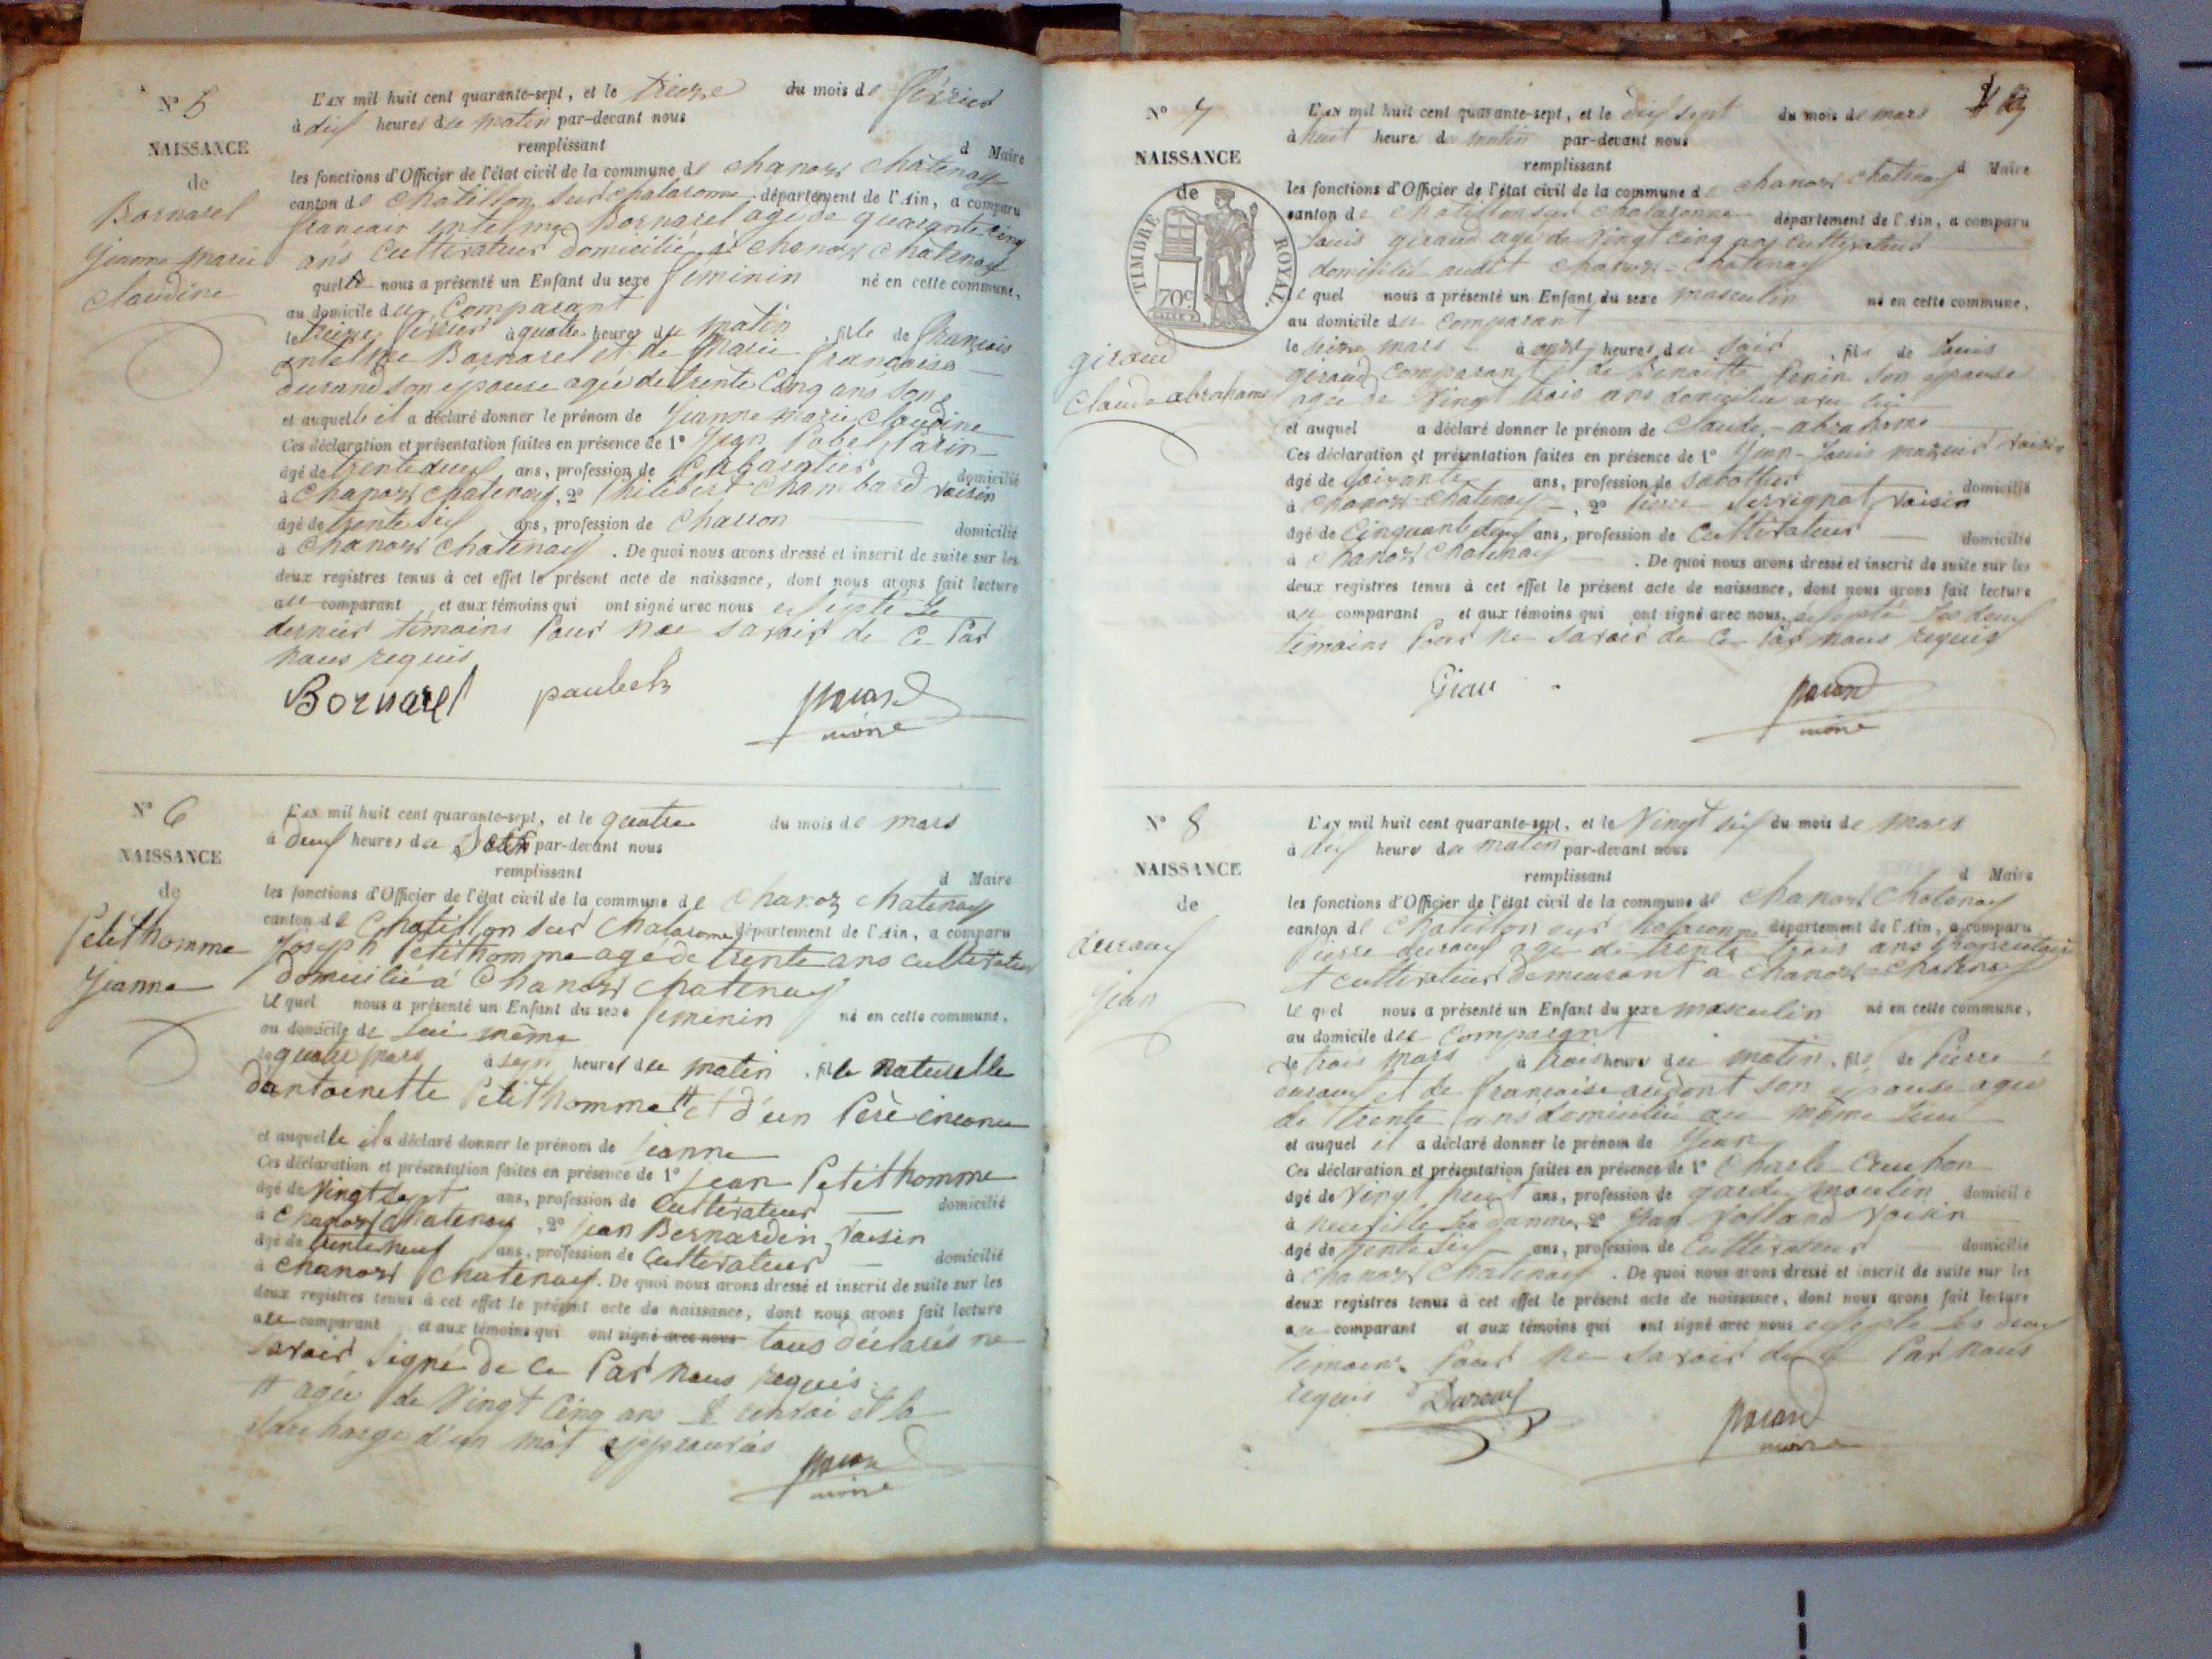 N° 5
NAISSANCE
de
Bornarel
Jeanne marie
Claudine
L'an mil huit cent quarante-sept, et le treize du mois de février
à dix heures du matin par-devant nous
remplissant d Maire
les fonctions d'Officier de l'état civil de la commune de chanoz Châtenay
canton de Chatillon sur chalaronne, département de l'Ain, a comparu
français entelme Bornarel agé de quarante cinq
ans Cultivateur domicilié à chanoz Chatenay
quel nous a présenté un Enfant du sexe feminin né en cette commune,
au domicile du Comparant
le treize février à quatre heures du matin, fille de français
entelme Bornarel et de Marie françoise
durand son epouse agée de trente Cinq ans
et auquelle il a déclaré donner le prénom de Jeanne marie Claudine
Ces déclaration et présentation faites en présence de 1°
âgé de trente deux ans, profession de Cabaretier domicilié
à Chanoz chatenay, 2° Philibert Chambard voisin
âgé de trente six ans, profession de Charron domicilié
à Chanoz Chatenay. De quoi nous avons dressé et inscrit de suite sur les
deux registres tenus à cet effet le présent acte de naissance, dont nous avons fait lecture
au comparant et aux témoins qui ont signé avec nous exsepté le
dernier témoins Pour nee savoir de ce Par
nous requis
Bornarel
N° 6
NAISSANCE
de
Petithomme
Jeanne
L'an mil huit cent quarante-sept, et le quatre du mois de mars
à deux heures du par-devant nous
remplissant d Maire
les fonctions d'Officier de l'état civil de la commune de Chanoz chatenay
canton de Chatillon sur Chalaronne département de l'Ain, a comparu
Joseph Petithomme agé de trente ans cultivateur
domicilié à Chanoz Chatenay
le quel nous a présenté un Enfant du sexe feminin né en cette commune,
au domicile de lui même
le quatre mars à sept heures du matin, fille naturelle
d'antoinette Petithomme # et d'un Perè inconu
et auquelle il a déclaré donner le prénom de Jeanne
Ces déclaration et présentation faites en présence de 1° jean Petithomme
âgé de Vingt sept ans, profession de Cultivateur domicilié
à Chanoz Chatenay, 2° jean Bernardin, voisin
âgé de trente neuf ans, profession de Cultivateur domicilié
à Chanoz Chatenay. De quoi nous avons dressé et inscrit de suite sur les
deux registres tenus à cet effet le présent acte de naissance, dont nous avons fait lecture
au comparant et aux témoins qui ont signé avec nous tous déclarés ne
savoir signé de ce Par nous requis.
# agée de Vingt Cinq ans le renvoi et la
surcharge d'un mot approuvés
N° 7
NAISSANCE
de
TIMBRE ROYAL.
70c
giraud
Claude abraham
L'an mil huit cent quarante-sept, et le dix sept du mois de mars
à huit heures du matin par-devant nous
remplissant d Maire
les fonctions d'Officier de l'état civil de la commune de chanoz chatenay
canton de Chatillon sur Chalaronne département de l'Ain, a comparu
Louis giraud agé de Vingt cinq ans Cultivateur
domicilié audit Chanoz-Chatenay
le quel nous a présenté un Enfant du sexe masculin né en cette commune,
au domicile du Comparant
le seize mars à onze heures du soir, fils de Louis
giraud comparant et de benoitte son epouse
agée de Vingt trois ans domicilié avec lui
et auquel a déclaré donner le prénom de Claude-abrahame
Ces déclaration et présentation faites en présence de 1° Jean-Louis mazuir voisin
âgé de Soixante ans, profession de sabottier domicilié
à Chanoz-Chatenay, 2° Pierre Servignat, voisin
âgé de Cinquante deux ans, profession de Cultivateur domicilié
à Chanoz Chatenay. De quoi nous avons dressé et inscrit de suite sur les
deux registres tenus à cet effet le présent acte de naissance, dont nous avons fait lecture
au comparant et aux témoins qui ont signé avec nous, exsepté les deux
témoins Pour ne savoir de ce Par nous requis
N° 8
NAISSANCE
de
duraux
Jean
L'an mil huit cent quarante-sept, et le Vingt six du mois de mars
à dix heures du matin par-devant nous
remplissant d Maire
les fonctions d'Officier de l'état civil de la commune de Chanoz Chatenay
canton de Chatillon sur Chalaronne département de l'Ain, a comparu
Pierre duraux agé de trente trois ans Propriétaire
et cultivateur demeurant a Chanoz-Chatenay
le quel nous a présenté un Enfant du sexe masculin né en cette commune,
au domicile du Comparant
le trois mars à trois heures du matin, fils de Pierre
duraux et de françoise son epouse agée
de trente ans domicilié au même lieu
et auquel il a déclaré donner le prénom de Jean
Ces déclaration et présentation faites en présence de 1° Charle
âgé de Vingt huit ans, profession de garde moulin domicilié
à neuville les damme, 2° Jean Volland voisin
âgé de trente six ans, profession de Cultivateur domicilié
à Chanoz Chatenay. De quoi nous avons dressé et inscrit de suite sur les
deux registres tenus à cet effet le présent acte de naissance, dont nous avons fait lecture
au comparant et aux témoins qui ont signé avec nous exsepté les deux
témoins Pour ne savoir de ce Par nous
requis Duraux